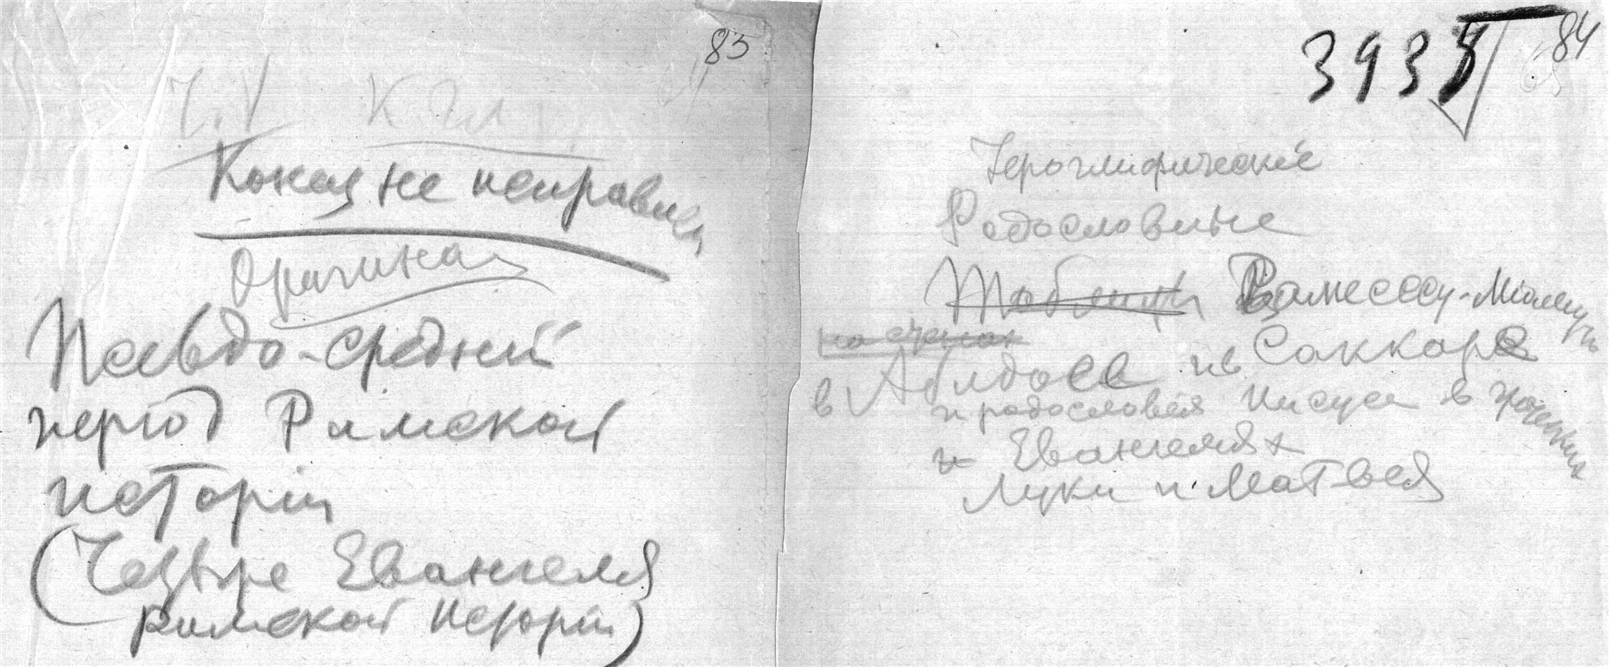 83
Ч. V К
Конец не исправлен
Оригинал
Псевдо-средній
период Римской
исторіи
(Четыре Евангелія
римской исторіи)
84
393
Іероглифическіе
Родословные
Таблицы Рамессу-Міамун
в Абидосе и в Саккаре
и родословия Иисуса в греческих
и Евангелиях
Луки и Матвея